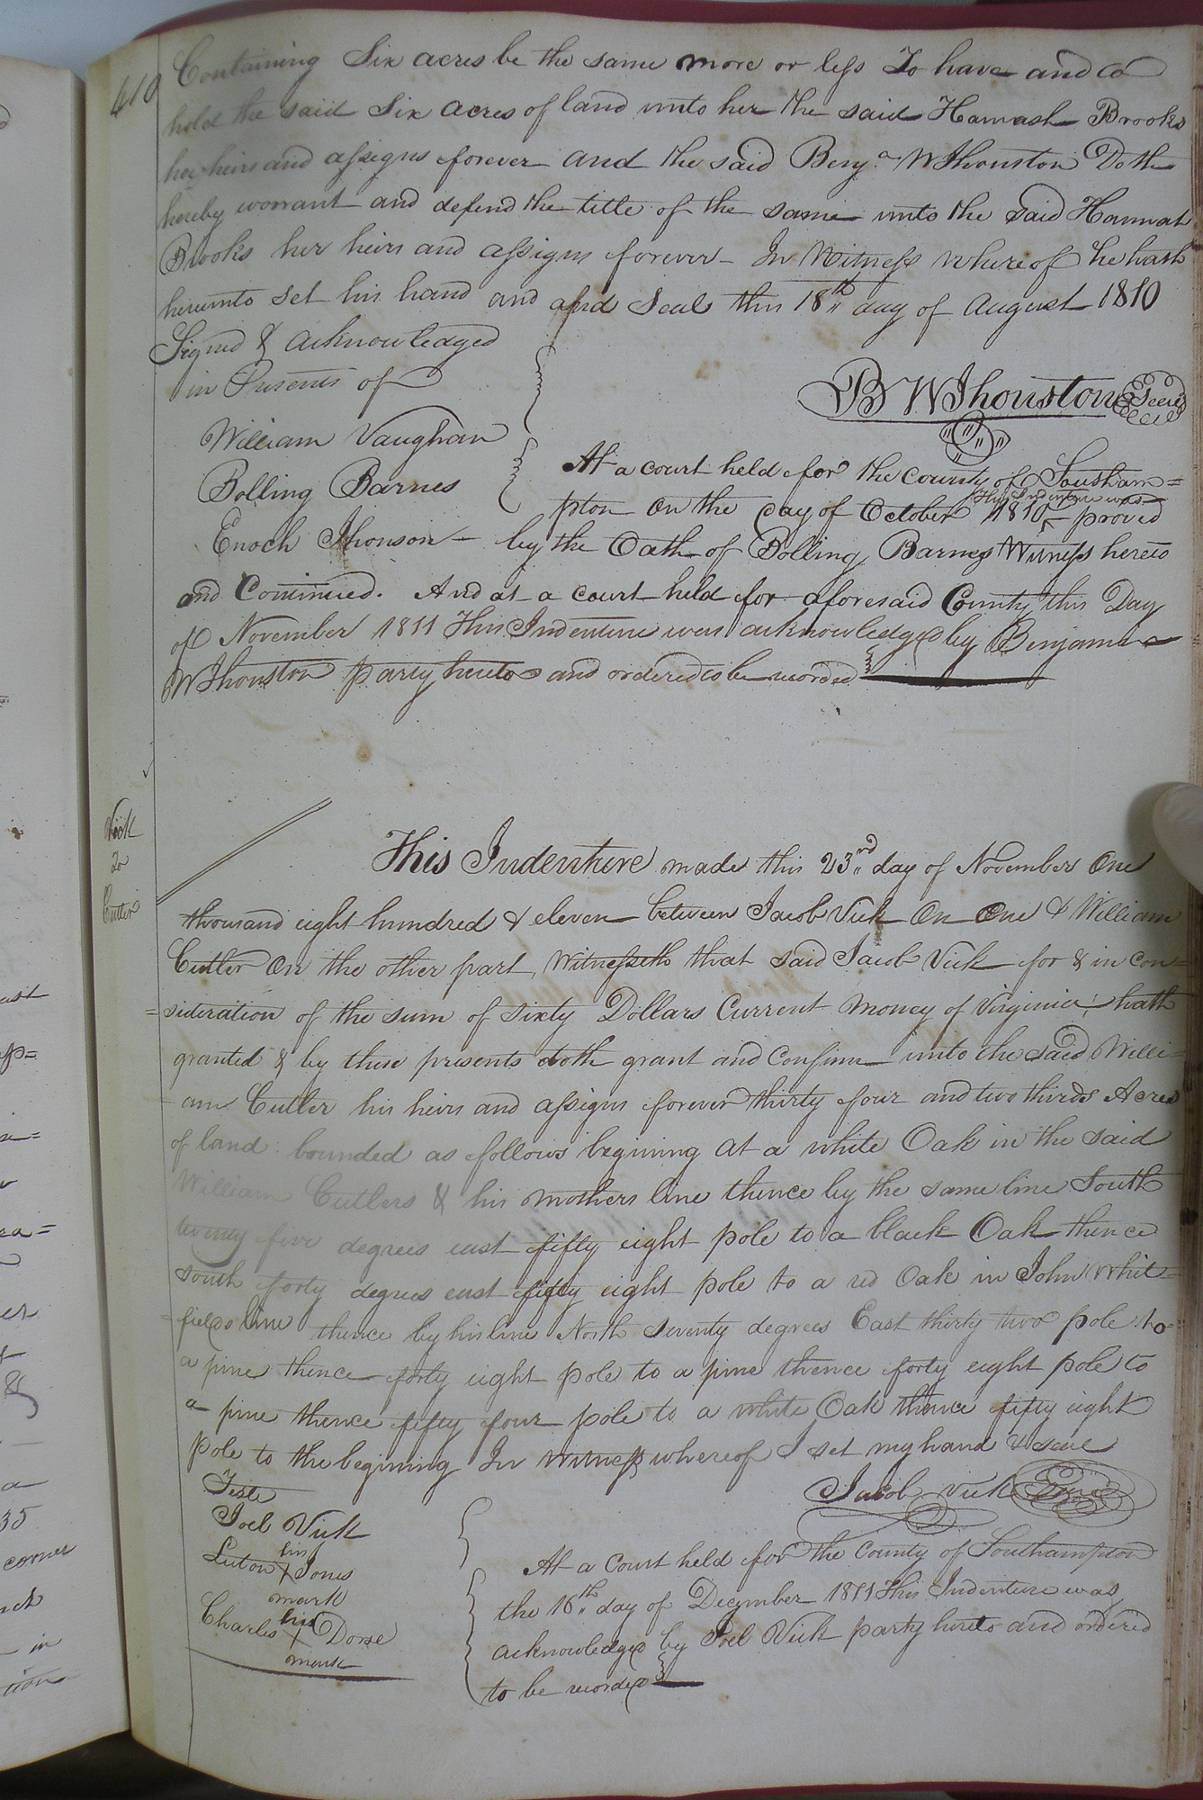 410
Containing Six acres be the same more or less To have and to
hold the said Six acres of land unto her the said Hannah Brooks
her heirs and assigns forever and the said Benja. W Jhonston Doth
hereby worrant and defend the title of the same unto the said Hannah
Brooks her heirs and assigns forever - In Witness whereof he hath
hereunto set his hand and affid Seal this 18th day of August 1810
Signed & acknowledged
in Presents of
B W Jhonston Seal
William Vaughan
Bolling Barnes
Enoch Jhonson
At a court held for the county of Southam=
pton on the day of October 1810 This Indenture was proved
by the Oath of Bolling Barnes Witness hereto
and Continued. And at a court held for aforesaid County this Day
of November 1811 This Indenture was acknowledged by Benjamin
W Jhonston party hereto and ordered to be recorded
Vick
To
Cutler
This Indenture made this 23nd day of November One
thousand eight hundred & eleven between Jacob Vick On One & William
Cutler On the other part, Witnesseth that said Jacob Vick for & in con=
=sideration of the sum of sixty Dollars Current money of Virginia, hath
granted & by these presents doth grant and Confirm unto the said Willi=
=am Cutler his heirs and assigns forever thirty four and two thirds Acres
of land bounded as follows begining at a white Oak in the said
William Cutlers & his mothers line thence by the same line South
twenty five degrees east fifty eight pole to a black Oak thence
south forty degrees east fifty eight pole to a red Oak in John Whit=
=fields line thence by his line North Seventy degrees East thirty two pole to
a pine thence forty eight pole to a pine thence forty eight pole to
a pine thence fifty four pole to a white Oak thence fifty eight
pole to the begining In Witness whereof I set my hand & seal
Jacob Vick Seal
Teste
Joel Vick
his
Luton X Jones
mark
his
Charles X
mark
At a Court held for the County of Southampton
the 16th day of December 1811 This Indenture was
acknowledged by Joel Vick party hereto and ordered
to be recorded